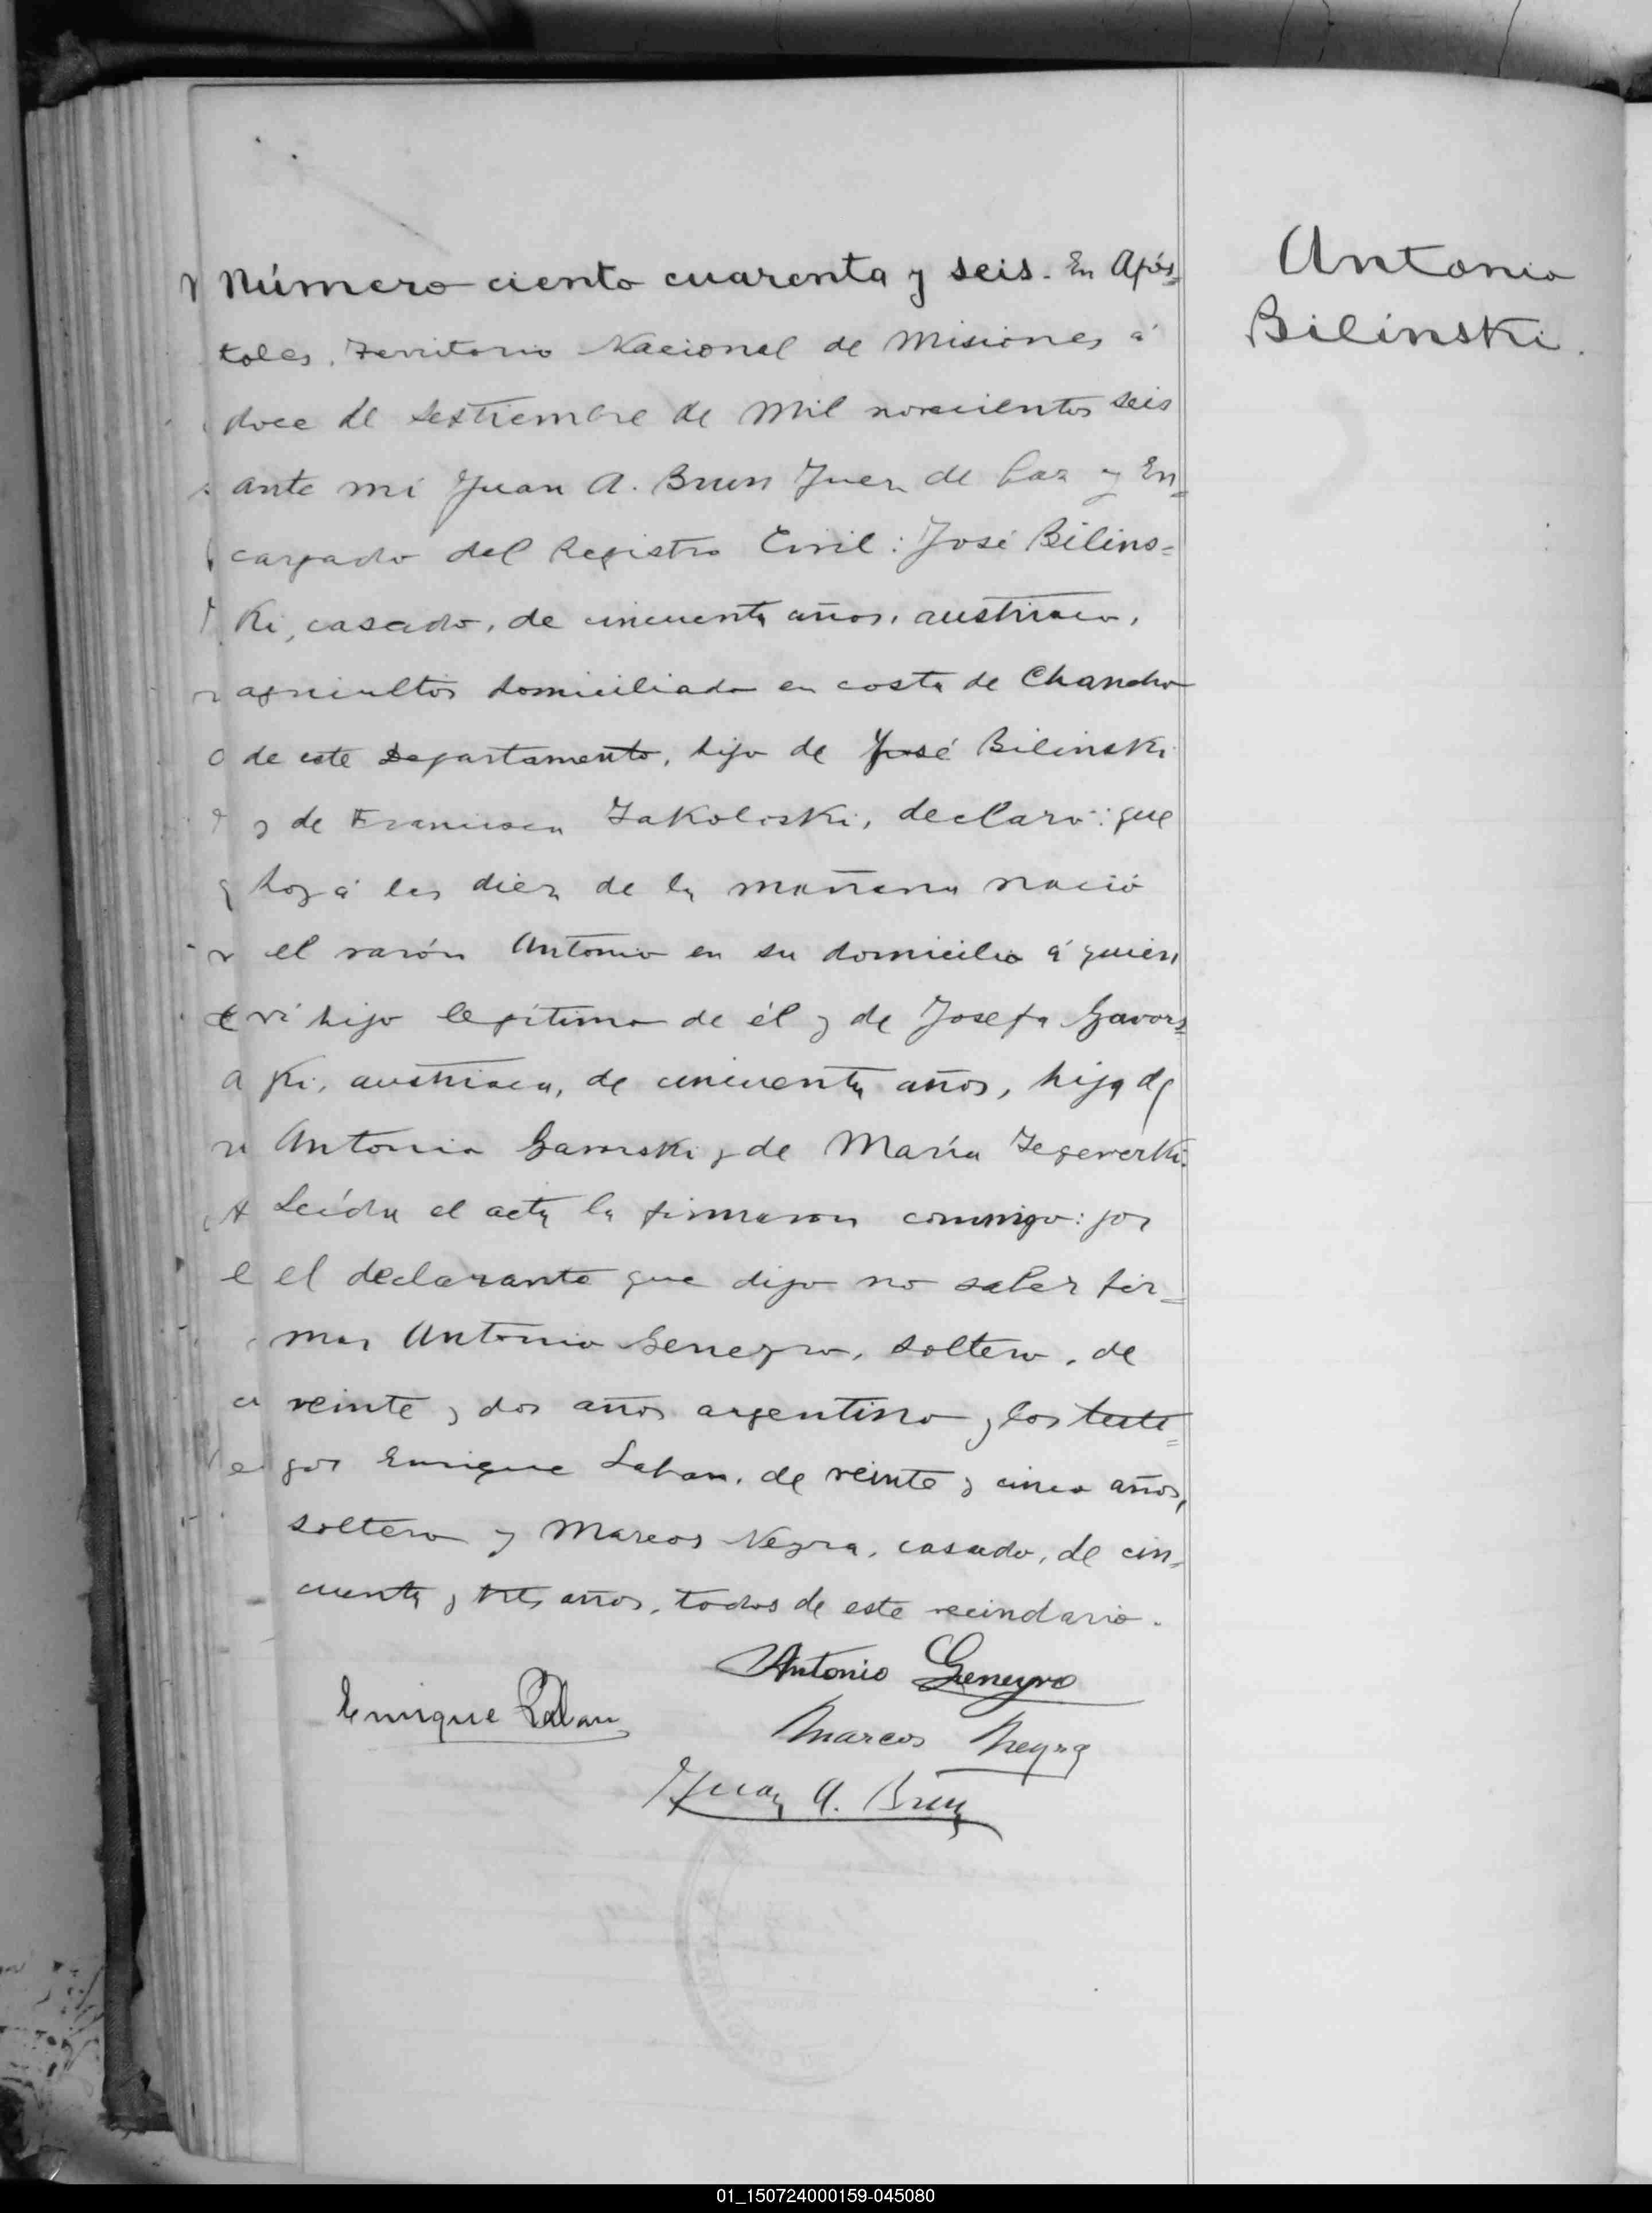 Número ciento cuarenta y seis. En Após=
toles, Territorio Nacional de Misiones á
doce de Septiembre de mil novecientos seis
ante mi Juan A. Brun Juez de Paz y En=
cargado del Registro Civil: José Bilins=
ki, casado, de cincuenta años, austriaco,
agricultor domiciliado en costa de Chancho
de este Departamento, hijo de José Bilinski
y de Francisca Zakoloski, declaró: que
hoy á las diez de la mañana nació
el varón Antonio en su domicilio á quien
ví hijo legítimo de él y de Josefa Gavors=
ki, austriaca, de cincuenta años, hija de
Antonio Gavorski y de María
Leída el acta la firmaron conmigo: por
el declarante que dijo no saber fir=
mar Antonio Geneyro, soltero, de
veinte y dos años argentino y los testi=
gos Enrique de veinte y cinco años,
soltero y Marcos Neyra, casado, de cin=
cuenta y tres años, todos de este vecindario.
Antonio Geneyro
Enrique
Marcos Neyra
Juan A. Brun
Antonio
Bilinski.
01_150724000159-045080